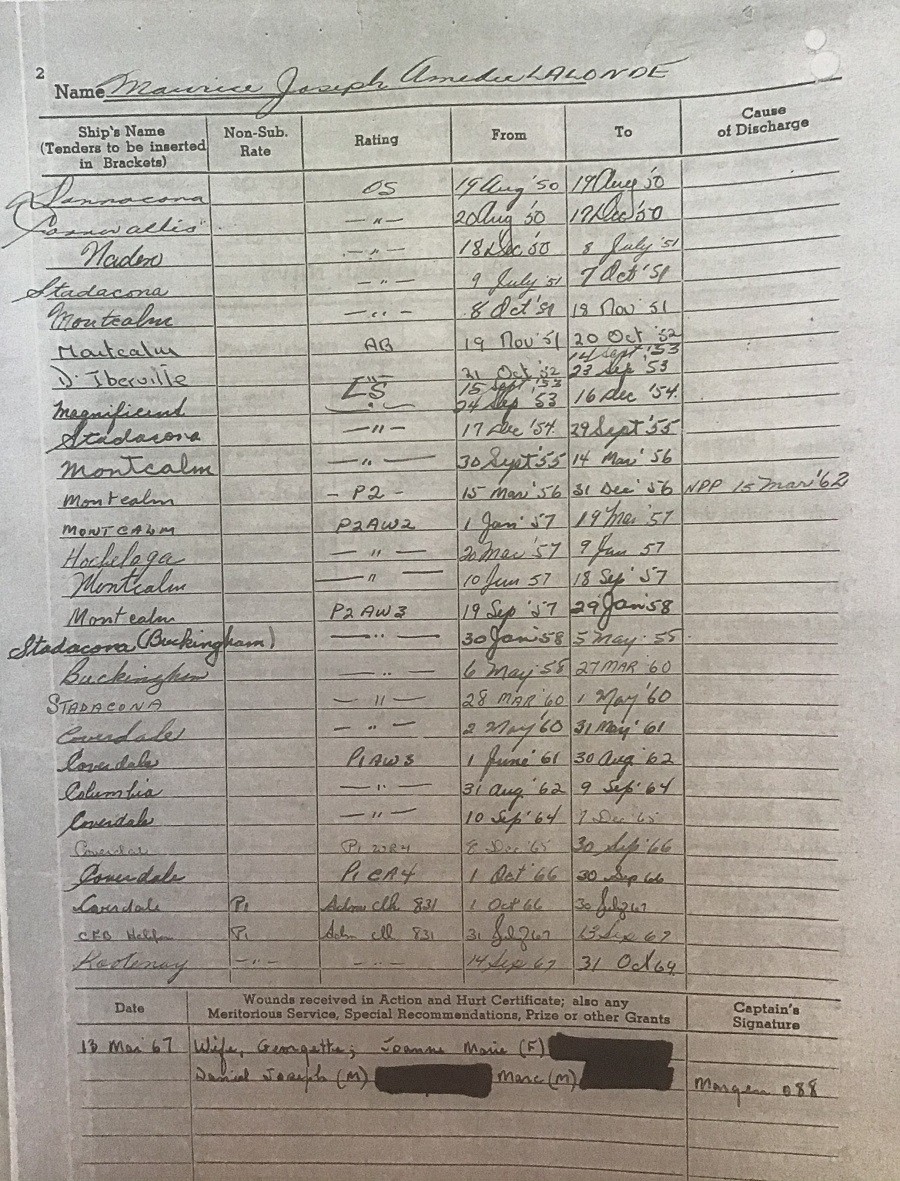 2
Name Maurice Joseph Amedee LALONDE
Ship's Name (Tenders to be inserted in Brackets) Non-Sub. Rate Rating From To Cause of Discharge
OS 19 Aug '50 19 Aug '50
Cornwallis — " — 20 Aug '50 17 Dec '50
Naden — " — 18 Dec '50 8 July '51
Stadacona — " — 9 July '51 7 Oct '51
Montcalm — " — 8 Oct '51 18 Nov 51
Montcalm AB 19 Nov '51 20 Oct '52
14 Sept '53
D'Iberville 21 Oct '52 23 Sep '53
LS 15 Sept '53
Magnificent — " — 24 Sep 53 16 Dec '54
Stadacona — " — 17 Dec '54 29 Sept '55
Montcalm — " — 30 Sept '55 14 Mar '56
Montcalm - P2 - 15 Mar '56 31 Dec '56 NPP 15 Mar '62
MONTCALM P2AW2 1 Jan '57 19 Mar '57
Hochelaga — " — 20 Mar '57 9 Jun 57
Montcalm — " — 10 Jun 57 18 Sep '57
Montcalm P2AW3 19 Sep '57 29 Jan '58
Stadacona (Buckingham) — " — 30 Jan '58 5 May 58
Buckingham — " — 6 May '58 27 MAR '60
STADACONA — " — 28 MAR '60 1 May '60
Coverdale — " — 2 May '60 31 May '61
Coverdale P1AW3 1 June '61 30 Aug '62
Columbia — " — 31 Aug '62 9 Sep '64
Coverdale — " — 10 Sep '64 7 Dec '65
Coverdale 8 Dec '65 30 Sep '66
Coverdale 1 Oct '66 30 Sep 66
Coverdale P1 Adm clk 831 1 Oct 66 30 July 67
CFB Halifax P1 Adm clk 831 31 July 67 13 Sep 67
Kootenay — " — — " — 14 Sep 67 31 Oct 69
Date Wounds received in Action and Hurt Certificate; also any Meritorious Service, Special Recommendations, Prize or other Grants Captain's Signature
13 Mar 67 Wife, Georgette; Joanne Marie (F)
Daniel Joseph (M) Marc (M) 088